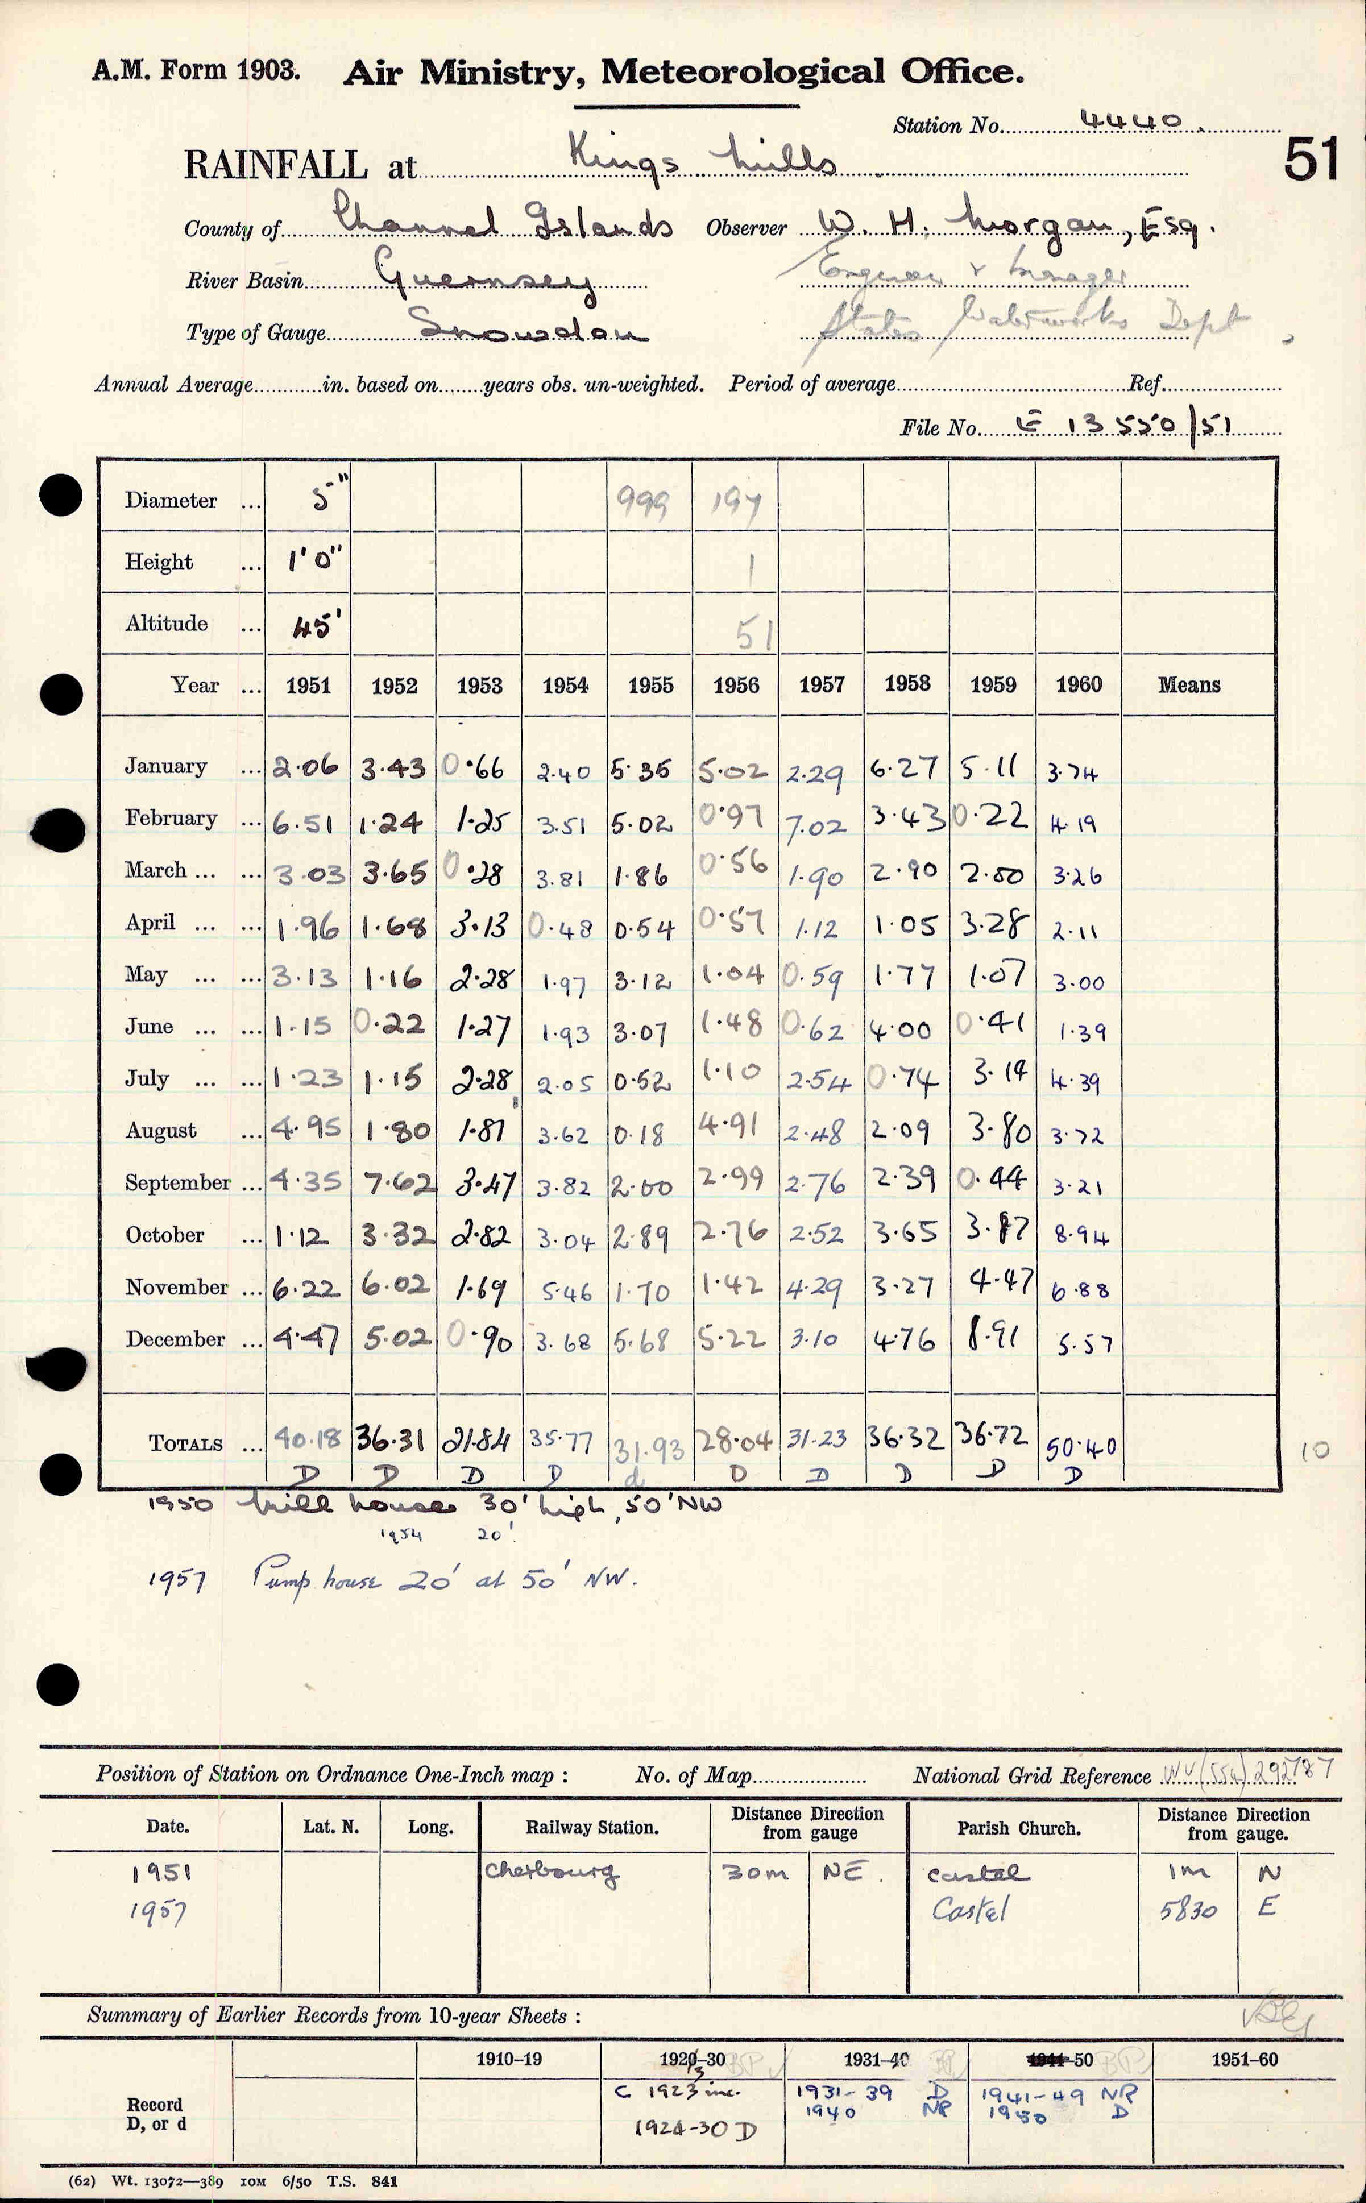 A.M. Form 1903. Air Ministry, Meteorological Office.
Station No. 4440.
51
RAINFALL at Kings Mills
County of Channel Islands Observer W. H. Morgan, Esq.
River Basin Guernsey Engineer & Manager
Type of Gauge Snowdon States Waterworks Dept,
Annual Average in. based on years obs. un-weighted. Period of average Ref.
File No. E 13550/51
Diameter ... 5" 999 197
Height ... 1'0" 1
Altitude ... 45' 51
Year ... 1951 1952 1953 1954 1955 1956 1957 1958 1959 1960 Means
January ... 2.06 3.43 0.66 2.40 5.35 5.02 2.29 6.27 5.11 3.74
February ... 6.51 1.24 1.25 3.51 5.02 0.97 7.02 3.43 0.22 4.19
March ... ... 3.03 3.65 0.28 3.81 1.86 0.56 1.90 2.90 2.00 3.26
April ... ... 1.96 1.68 3.13 0.48 0.54 0.57 1.12 1.05 3.28 2.11
May ... ... 3.13 1.16 2.28 1.97 3.12 1.04 0.59 1.77 1.07 3.00
June ... ... 1.15 0.22 1.27 1.93 3.07 1.48 0.62 4.00 0.41 1.39
July ... ... 1.23 1.15 2.28 2.05 0.52 1.10 2.54 0.74 3.14 4.39
August ... 4.95 1.80 1.81 3.62 0.18 4.91 2.48 2.09 3.80 3.72
September ... 4.35 7.62 3.47 3.82 2.00 2.99 2.76 2.39 0.44 3.21
October ... 1.12 3.32 2.82 3.04 2.89 2.76 2.52 3.65 3.87 8.94
November ... 6.22 6.02 1.69 5.46 1.70 1.42 4.29 3.27 4.47 6.88
December ... 4.47 5.02 0.90 3.68 5.68 5.22 3.10 4.76 8.91 5.57
TOTALS ... 40.18 36.31 21.84 35.77 31.93 28.04 31.23 36.32 36.72 50.40 10
D D D D d D D D D D
1950 Mill house 30' high, 50' NW
1954 20'
1957 Pump house 20' at 50' NW.
Position of Station on Ordnance One-Inch map : No. of Map National Grid Reference 292787
Date. Lat. N. Long. Railway Station. Distance Direction from gauge Parish Church. Distance Direction from gauge.
1951 Cherbourg 30m NE. Castel 1m N
1957 Castel 5830 E
Summary of Earlier Records from 10-year Sheets :
1910–19 1920–30 1931–40 1941–50 1951–60
Record D, or d
C 1923 inc. 1931-39 D 1941-49 NR
1940 NR 1950 D
1924-30 D
(62) Wt. 13072—389 10M 6/50 T.S. 841